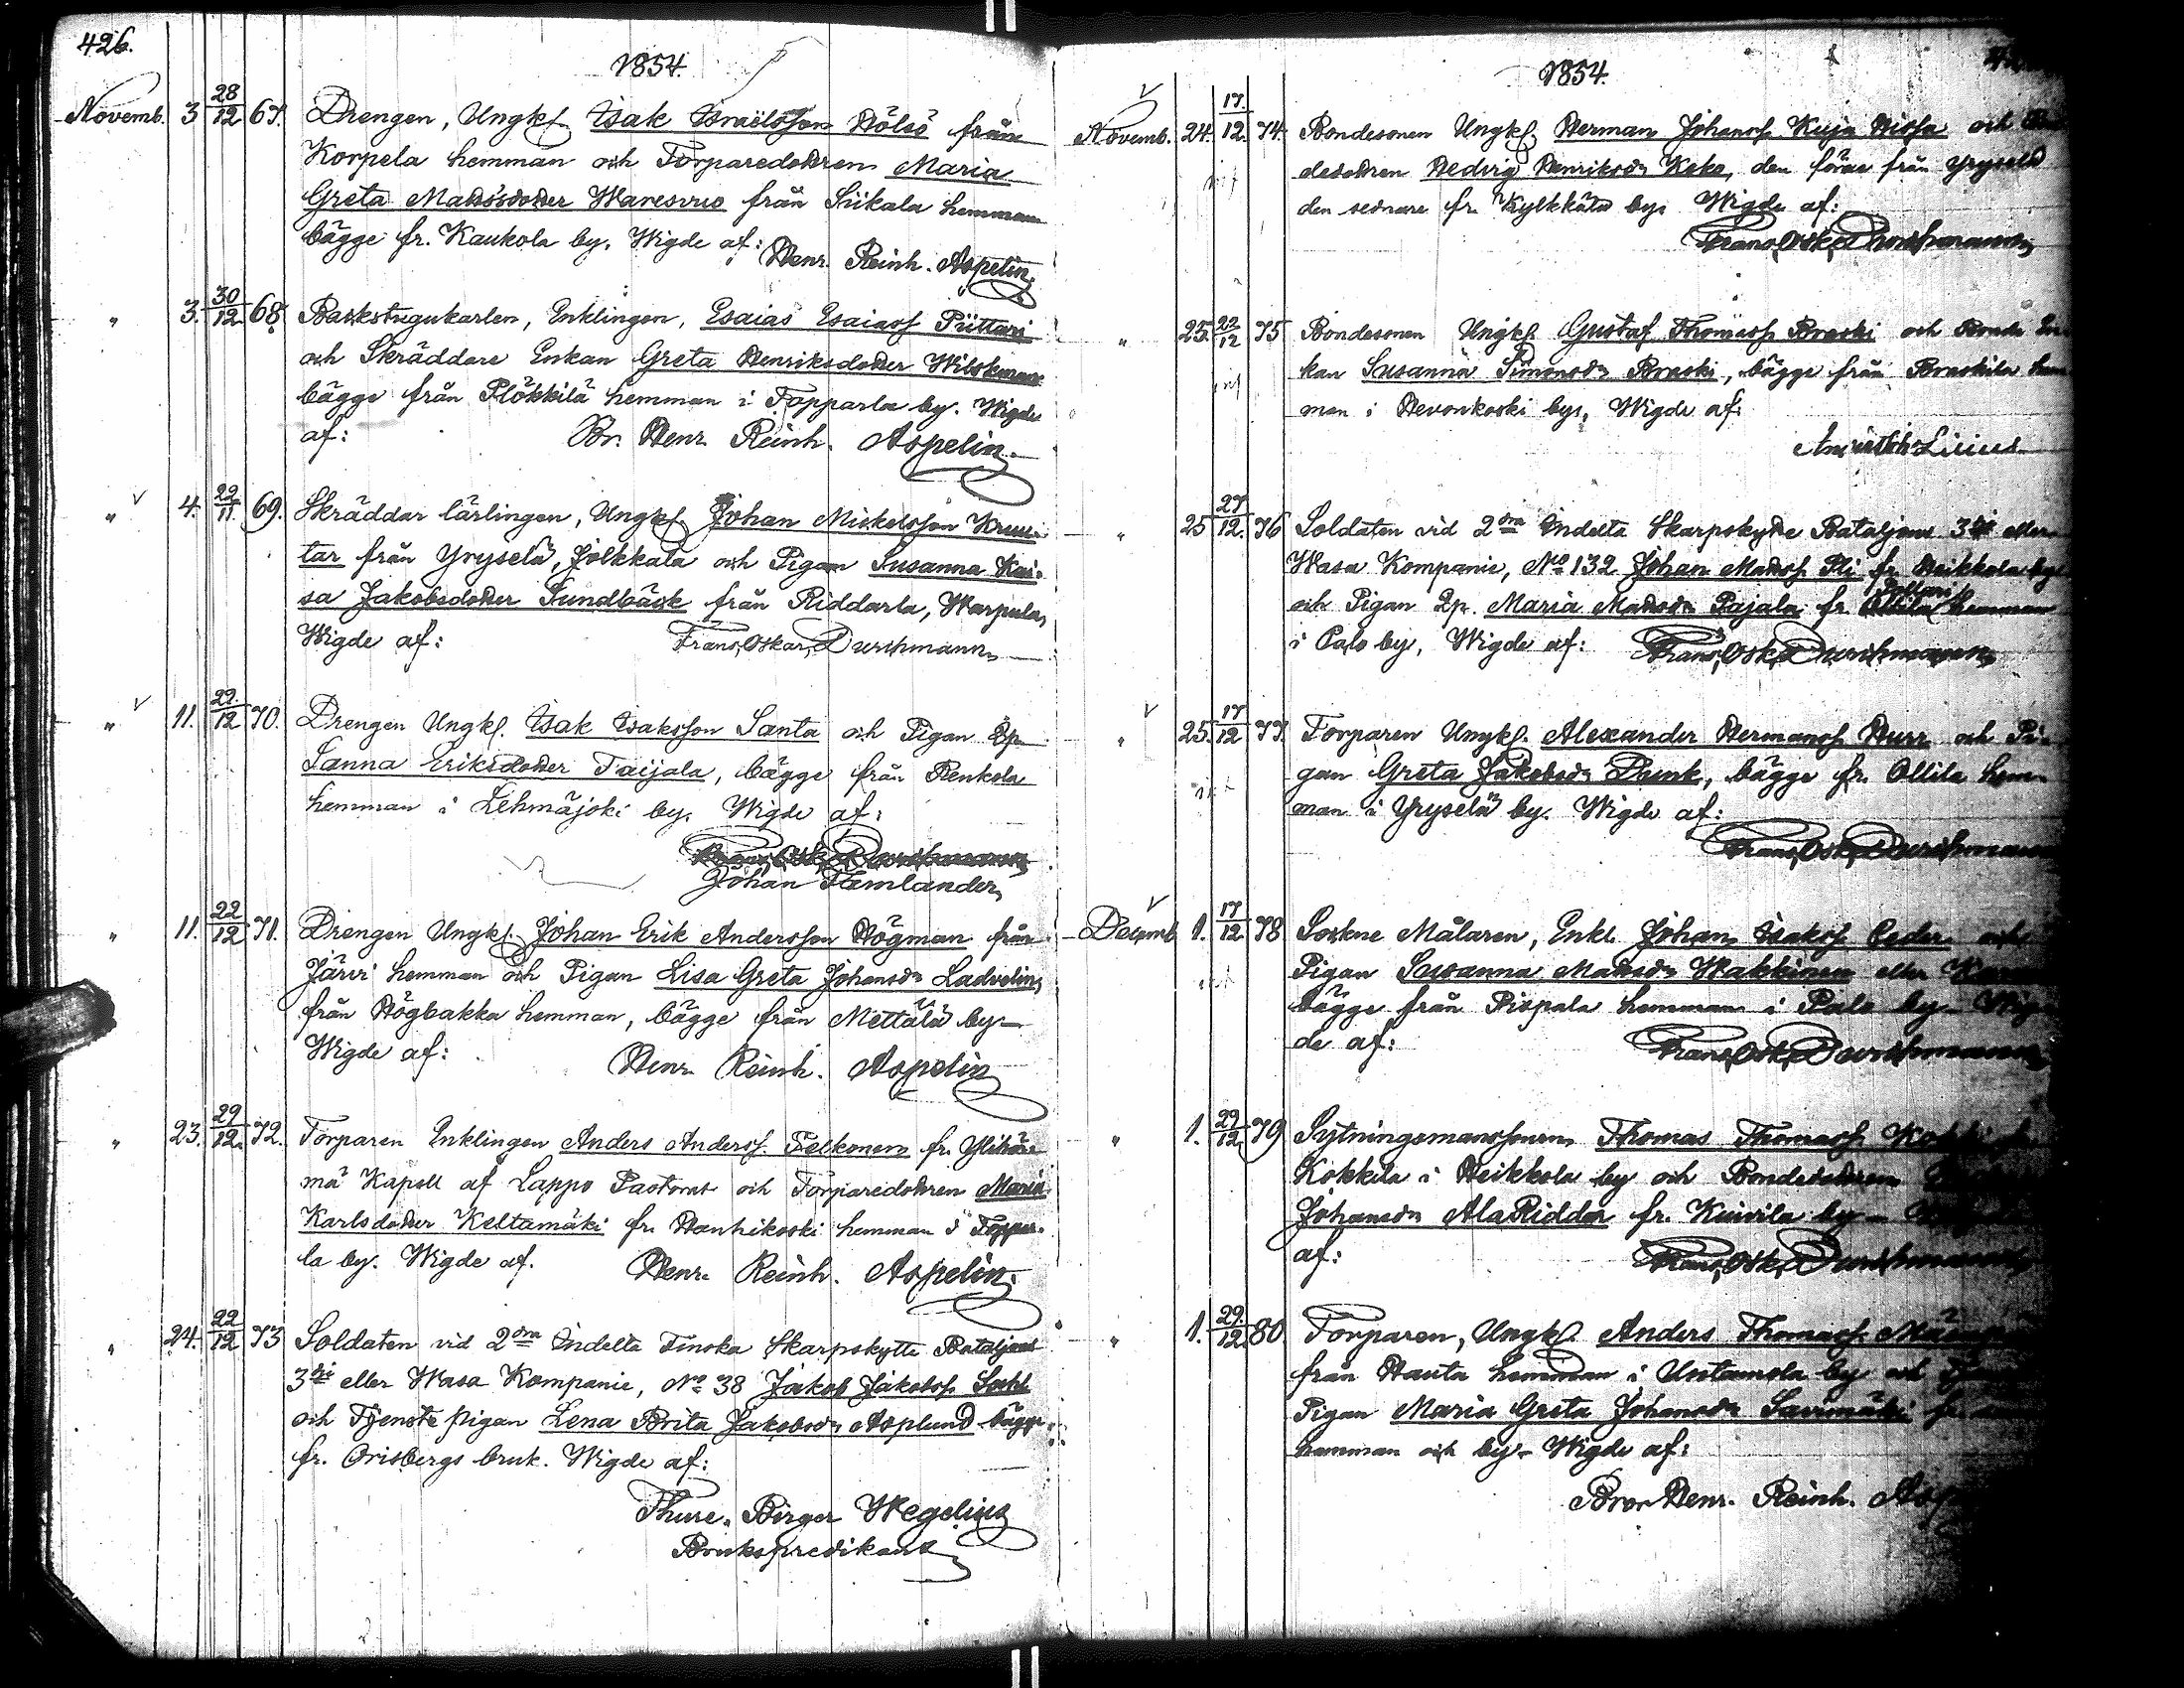 426.
1854.
Novemb. 3 28/12 67. Drengen, Ungkf. Isak Israelsson Hölsö från
Korpela hemman och Torparedottren Maria
Greta Mattsdotter Waresvuo från Siikala hemman
bägge fr. Kaukola by. Wigde af:
Henr. Reinh. Aspelin.
" 3. 30/12 68. Backstugukarlen, Enklingen, Esaias Esaiasf. Piittari
och Skräddare Enkan Greta Henriksdotter Wilskman
bägge från Plökkilä hemman i Topparla by. Wigde
af: Br. Henr. Reinh. Aspelin.
" 4. 22/11. 69. Skräddar lärlingen, Ungkf. Johan Mickelsson Kruu-
tar från Yryselä, Jolkkala och Pigan Susanna Kai-
sa Jakobsdotter Sundbäck från Riddarla, Warpula,
Wigde af: Frans Oskar Durchmann
" 11. 22./12 70. Drengen Ungkf. Isak Isaksson Santa och Pigan Qp.
Sanna Eriksdotter Taijala, bägge från Renkola
hemman i Lehmäjoki by. Wigde af:
Frans Osk. Durchmann
Johan Flemlander,
" 11. 22/12 71. Drengen Ungkf. Johan Erik Andersson Högman från
Järvi hemman och Pigan Lisa Greta Johansdr Ladvelin,
från Högbakka hemman, bägge från Mettälä by
Wigde af: Henr. Reinh. Aspelin
" 23. 29/12. 72. Torparen Enklingen Anders Andersf. Felkonen fr. Ylihär-
mä Kapell af Lappo Pastorat och Torparedottren Maria
Karlsdotter Keltamäki fr. Hanhikoski hemman i Toppar-
la by. Wigde af. Henr. Reinh. Aspelin.
" 24. 22/12 73 Soldaten vid 2dra Indelta Finska Skarpskytte Bataljons
3dje eller Wasa Kompanie, No 38 Jakob Jakobsf.
och Tjenste pigan Lena Brita Jakobsdr Asplund bägge
fr. Orisbergs bruk. Wigde af:
Thure Birger Wegelius
Brukspredikant
1854.
Novemb. 24. 17./12. 74. Bondesonen Ungkf. Herman Johansf. Kuja Hissa och
dedottren Hedvig Henriksdr Keko, den förre från Yryselä
den sednare fr. Kylkkälä by. Wigde af:
Frans Osk. Durchmann
" 25. 22/12 75 Bondesonen Ungkf. Gustaf Thomasf. Braski och Bonde En-
kan Susanna Simonsdr Braski, bägge från Braskila hem-
man i Hevonkoski by. Wigde af:
" 25 27/12. 76 Soldaten vid 2dra Indelta Skarpskytte Bataljons 3dje eller
Wasa Kompanie, No 132 Johan Mattsf. Pli fr. Heikkola by
och Pigan Qp. Maria Mattsdr Pajala fr. Ollila hemman
i Palo by, Wigde af: Frans Osk. Durchmann
" 25. 17/12 77. Torparen Ungkf. Alexander Hermansf. Hurr och Pi-
gan Greta Jakobsdr Dunk, bägge fr. Ollila hem-
man i Yryselä by. Wigde af:
Frans Osk. Durchmann
Decemb. 1. 17/12. 78 Sockne Målaren, Enkl. Johan Isaksf. Ceder och
Pigan Susanna Mattsdr Wakkinen eller
bägge från Pispala hemman i Palo by Wig-
de af: Frans Osk. Durchmann
" 1. 29/12 79 Sytningsmanssonen Thomas Thomasf.
Kokkila i Heikkola by och Bondedottren
Johansdr AlaRiddar fr. Kuivila by
af: Frans Osk. Durchmann
" 1. 29./12. 80 Torparen, Ungkf. Anders Thomasf.
från Hauta hemman i Ulstamola by och
Pigan Maria Greta Johansdr Sarvimäki fr.
hemman och by Wigde af:
Bror Henr. Reinh.